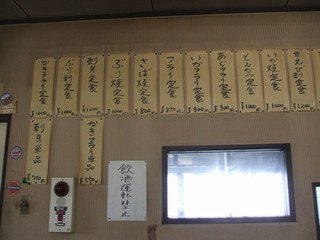 せえび刺定食
いか焼定食
¥1000
とんかつ定食
¥1000
あじフライ定食
¥900
いかフライ定食
¥900
フライ定食
¥850
さば焼定食
¥800
ぶり焼定食
¥1000
刺身定食
¥1200
ぶり刺定食
¥1000
かきフライ定食
¥1000
かきフライ単品
刺身単品
飲酒運転禁止